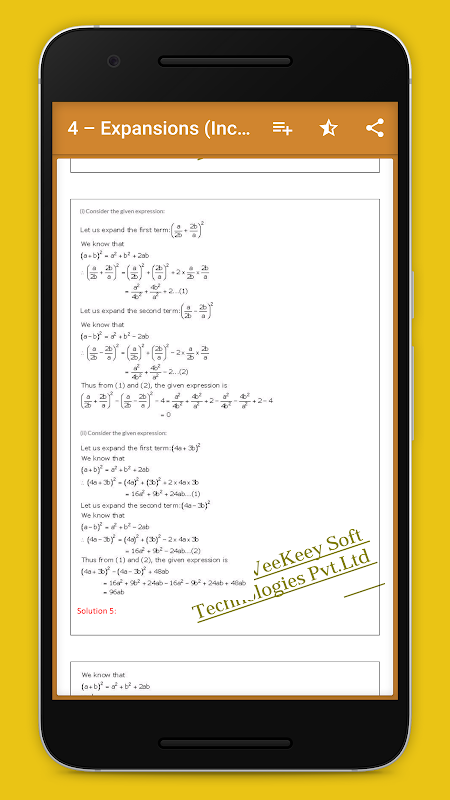 4 – Expansions (Inc...
(i) Consider the given expression:
Let us expand the first term: (a/2b + 2b/a)²
We know that
(a+b)² = a² + b² + 2ab
∴ (a/2b + 2b/a)² = (a/2b)² + (2b/a)² + 2 x a/2b x 2b/a
= a²/4b² + 4b²/a² + 2...(1)
Let us expand the second term: (a/2b − 2b/a)²
We know that
(a−b)² = a² + b² − 2ab
∴ (a/2b − 2b/a)² = (a/2b)² + (2b/a)² − 2 x a/2b x 2b/a
= a²/4b² + 4b²/a² − 2...(2)
Thus from (1) and (2), the given expression is
(a/2b + 2b/a)² − (a/2b − 2b/a)² − 4 = a²/4b² + 4b²/a² + 2 − a²/4b² − 4b²/a² + 2 − 4
= 0
(ii) Consider the given expression:
Let us expand the first term: (4a + 3b)²
We know that
(a+b)² = a² + b² + 2ab
∴ (4a + 3b)² = (4a)² + (3b)² + 2 x 4a x 3b
= 16a² + 9b² + 24ab...(1)
Let us expand the second term: (4a − 3b)²
We know that
(a−b)² = a² + b² − 2ab
∴ (4a − 3b)² = (4a)² + (3b)² − 2 x 4a x 3b
= 16a² + 9b² − 24ab...(2)
Thus from (1) and (2), the given expression is
(4a + 3b)² − (4a − 3b)² + 48ab
= 16a² + 9b² + 24ab − 16a² − 9b² + 24ab + 48ab
= 96ab
VeeKeey Soft
Technologies Pvt.Ltd
Solution 5:
We know that
(a+b)² = a² + b² + 2ab